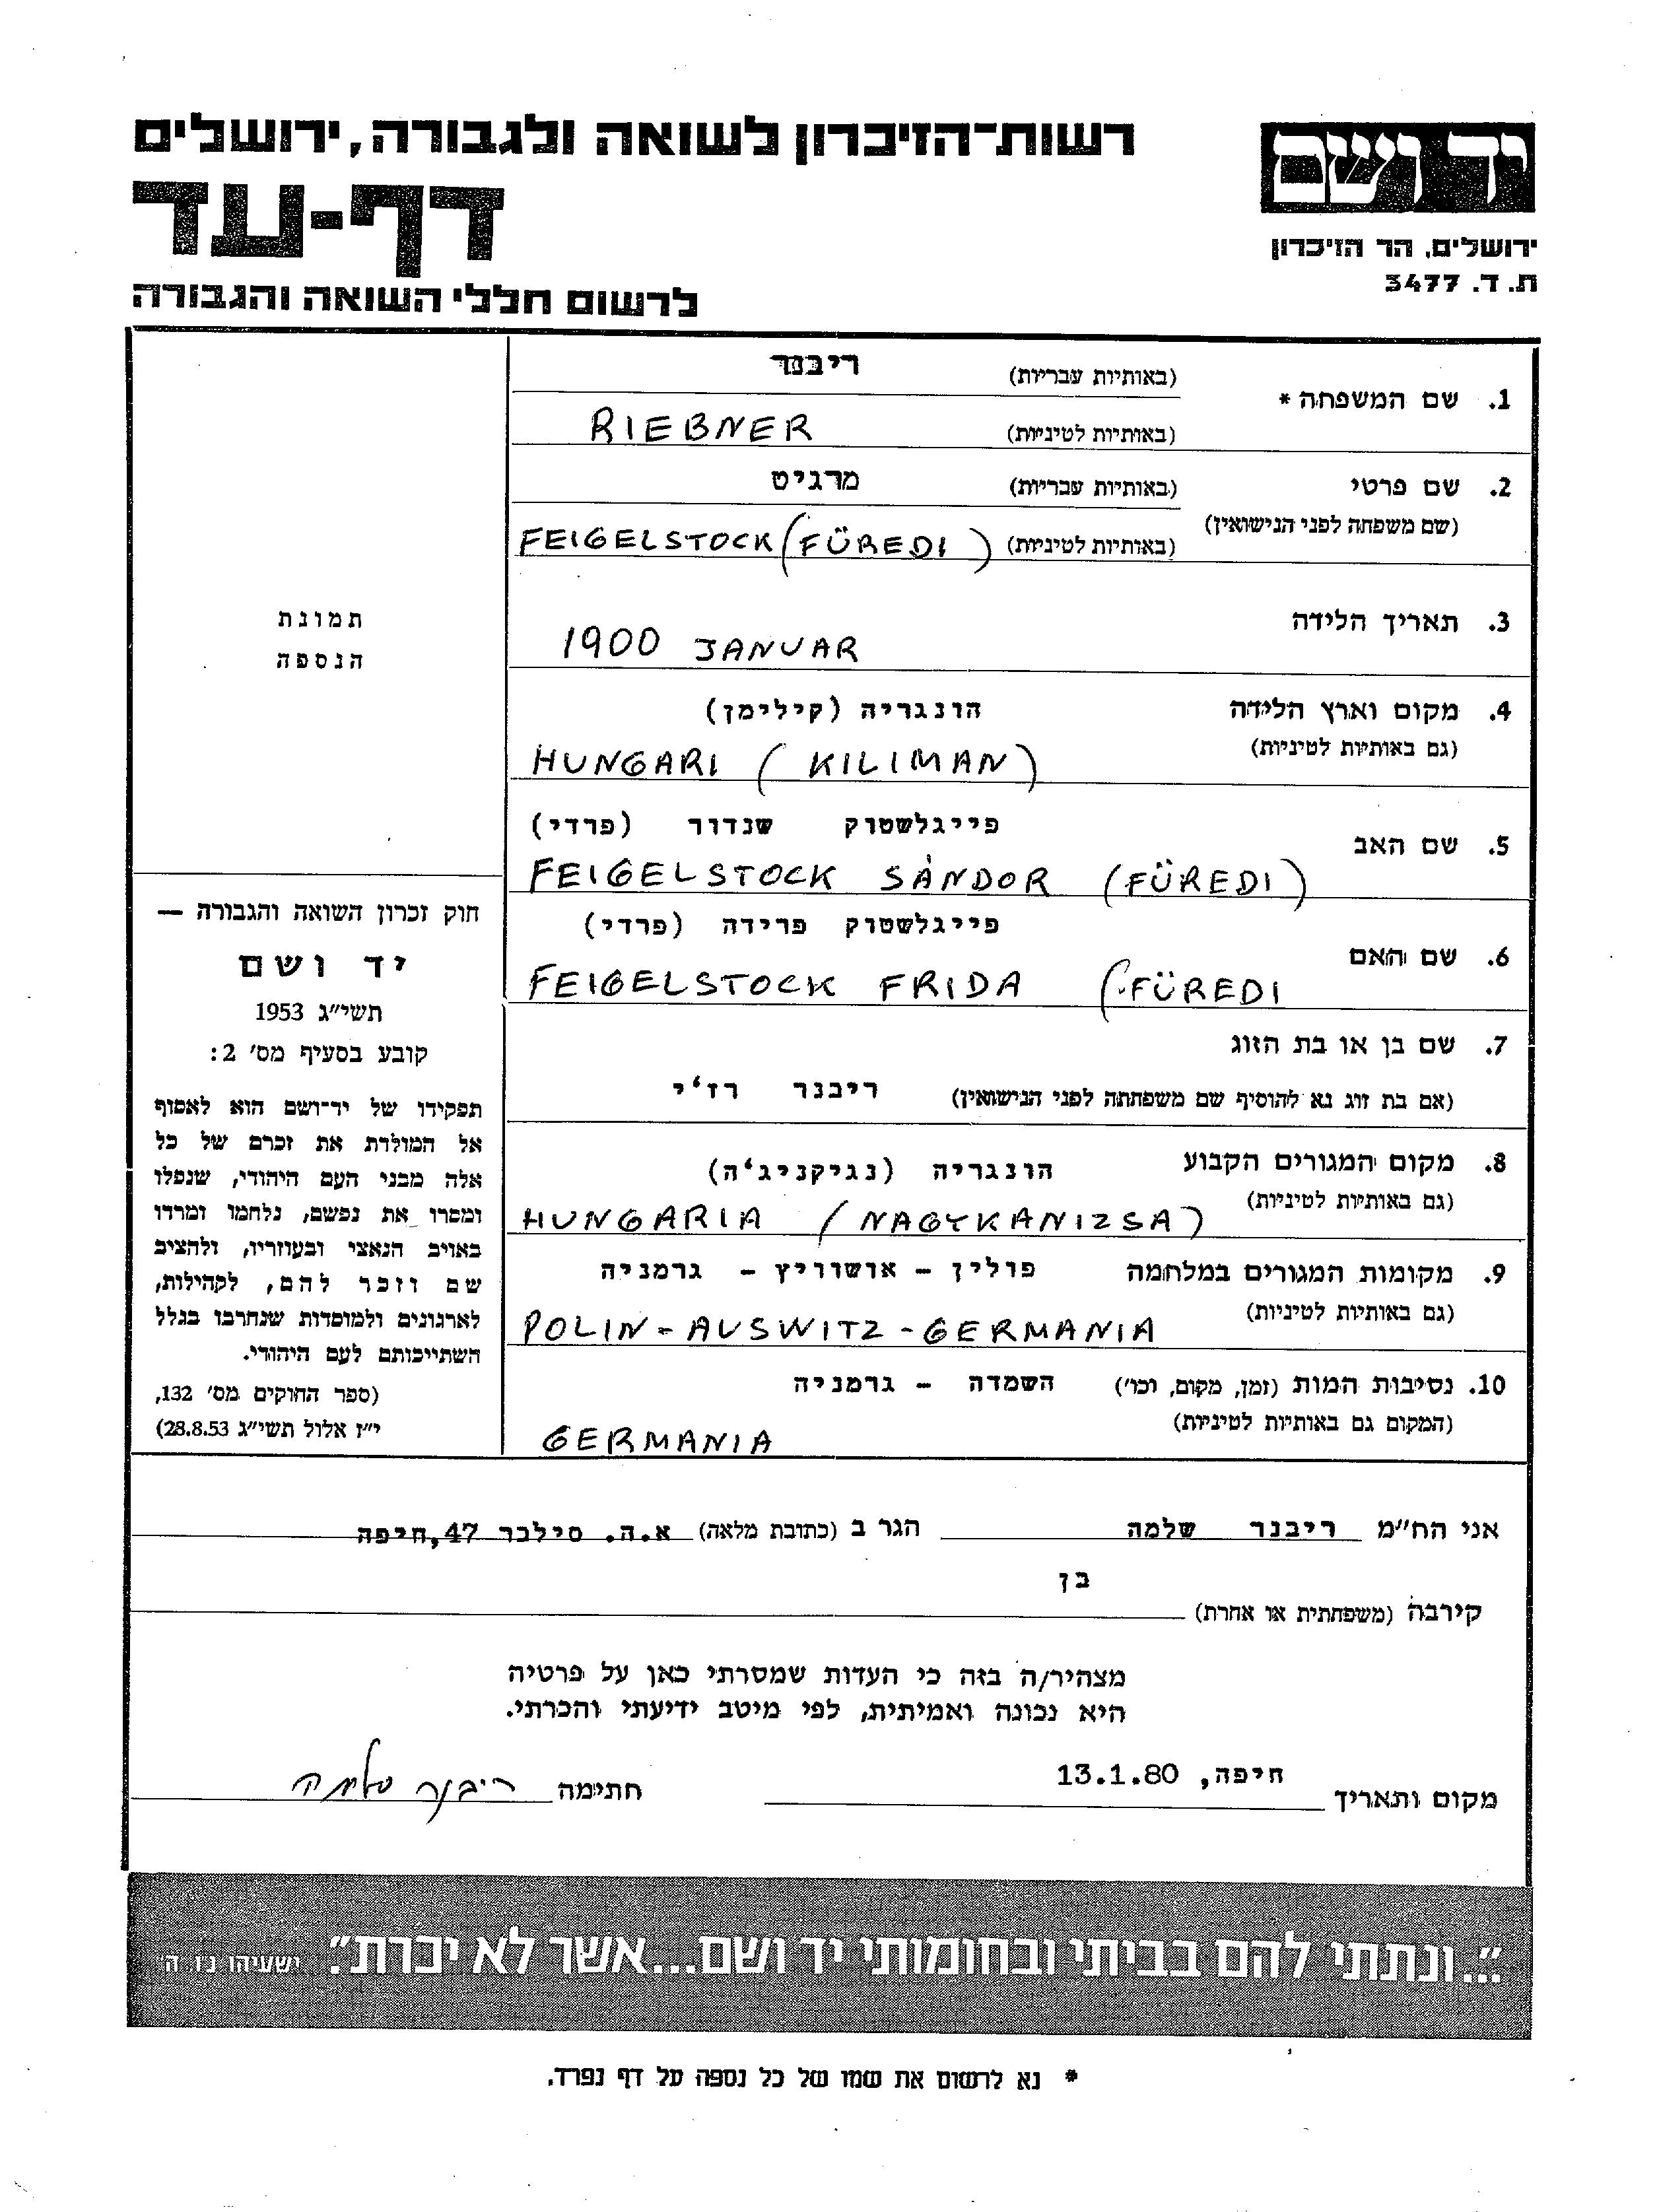 רשות־הזיכרון לשואה ולגבורה, ירושלים
יד ושם
דף-עד
ירושלים, הר הזיכרון
ת. ד. 3477
לרשום חללי השואה והגבורה
1. שם המשפחה * (באותיות עבריות) ריבנר
(באותיות לטיניות) RIEBNER
2. שם פרטי (באותיות עבריות) מרגיט
(שם משפחה לפני הנישואין) (באותיות לטיניות) FEIGELSTOCK (FÜREDI)
3. תאריך הלידה 1900 JANUAR
4. מקום וארץ הלידה הונגריה (קילימן)
(גם באותיות לטיניות) HUNGARI (KILIMAN)
5. שם האב פייגלשטוק שנדור (פרדי)
FEIGELSTOCK SÁNDOR (FÜREDI)
6. שם האם פייגלשטוק פרידה (פרדי)
FEIGELSTOCK FRIDA (FÜREDI
7. שם בן או בת הזוג
(אם בת זוג נא להוסיף שם משפחתה לפני הנישואין) ריבנר רז'י
8. מקום המגורים הקבוע הונגריה (נגיקניג'ה)
(גם באותיות לטיניות) HUNGARIA (NAGYKANIZSA)
9. מקומות המגורים במלחמה פולין - אושוויץ - גרמניה
(גם באותיות לטיניות) POLIN - AUSWITZ - GERMANIA
10. נסיבות המות (זמן, מקום, וכו') השמדה - גרמניה
(המקום גם באותיות לטיניות) GERMANIA
תמונת
הנספה
חוק זכרון השואה והגבורה —
יד ושם
תשי"ג 1953
קובע בסעיף מס' 2:
תפקידו של יד־ושם הוא לאסוף
אל המולדת את זכרם של כל
אלה מבני העם היהודי, שנפלו
ומסרו את נפשם, נלחמו ומרדו
באויב הנאצי ובעוזריו, ולהציב
שם וזכר להם, לקהילות,
לארגונים ולמוסדות שנחרבו בגלל
השתייכותם לעם היהודי.
(ספר החוקים מס' 132,
י"ז אלול תשי"ג 28.8.53)
אני הח"מ ריבנר שלמה הגר ב (כתובת מלאה) א.ה. סילבר 47, חיפה
בן
קירבה (משפחתית או אחרת)
מצהיר/ה בזה כי העדות שמסרתי כאן על פרטיה
היא נכונה ואמיתית, לפי מיטב ידיעתי והכרתי.
מקום ותאריך חיפה, 13.1.80 חתימה ריבנר שלמה
"...ונתתי להם בביתי ובחומותי יד ושם...אשר לא יכרת". ישעיהו נ"ו, ה'
* נא לרשום את שמו של כל נספה על דף נפרד.